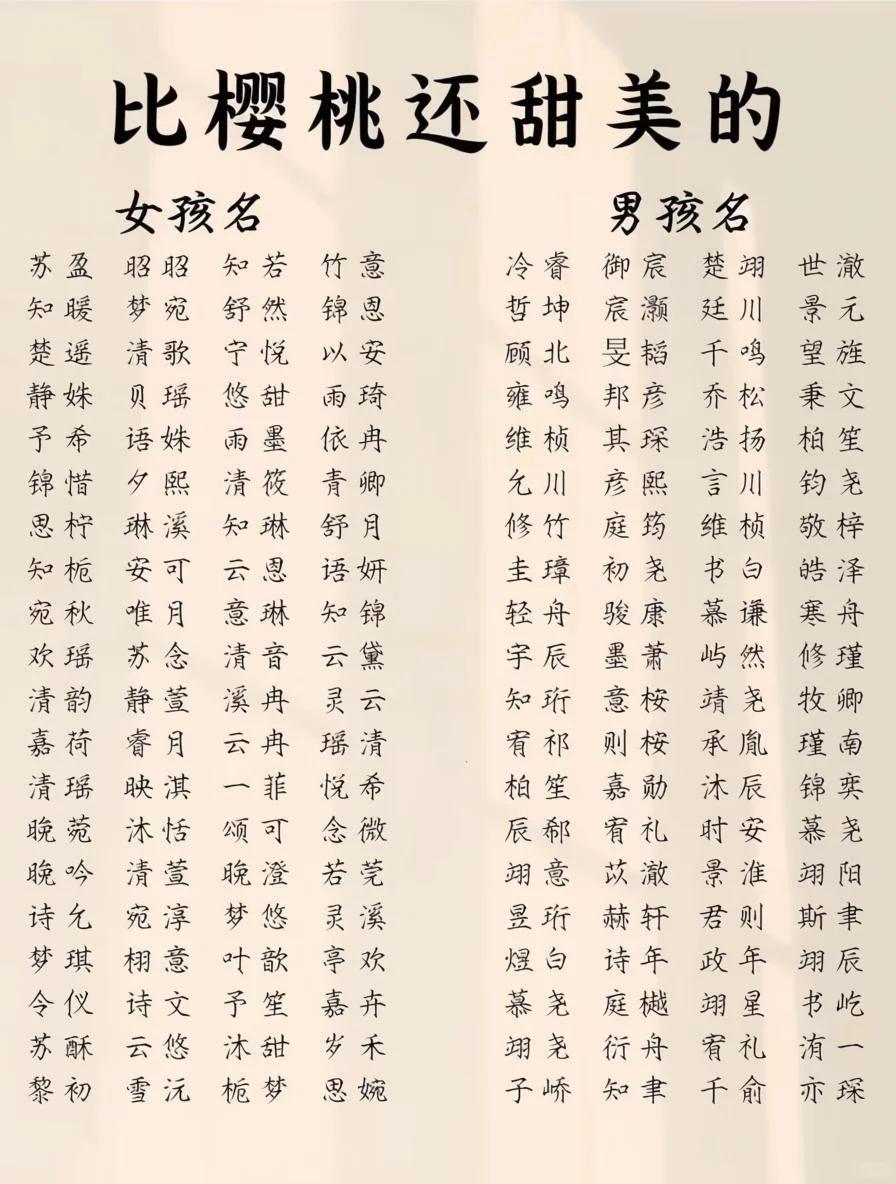 比樱桃还甜美的
女孩名 男孩名
苏盈 昭昭 知若 竹意 冷睿 御宸 楚翊 世澈
知暖 梦宛 舒然 锦恩 哲坤 宸灏 廷川 景元
楚遥 清歌 宁悦 以安 顾北 旻韬 千鸣 望旌
静姝 贝瑶 悠甜 雨琦 雍鸣 邦彦 乔松 秉文
予希 语姝 雨墨 依冉 维桢 其琛 浩扬 柏笙
锦惜 夕熙 清筱 青卿 允川 彦熙 言川 钧尧
思柠 琳溪 知琳 舒月 修竹 庭筠 维桢 敬梓
知栀 安可 云恩 语妍 圭璋 初尧 书白 皓泽
宛秋 唯月 意琳 知锦 轻舟 骏康 慕谦 寒舟
欢瑶 苏念 清音 云黛 宇辰 墨萧 屿然 修瑾
清韵 静萱 溪冉 灵云 知珩 意桉 靖尧 牧卿
嘉荷 睿月 云冉 瑶清 宥祁 则桉 承胤 瑾南
清瑶 映淇 一菲 悦希 柏笙 嘉勋 沐辰 锦奕
晚菀 沐恬 颂可 念微 辰郗 宥礼 时安 慕尧
晚吟 清萱 晚澄 若莞 翊意 苡澈 景淮 翊阳
诗允 宛淳 梦悠 灵溪 昱珩 赫轩 君则 斯聿
梦琪 栩意 叶歆 亭欢 煜白 诗年 政年 翊辰
令仪 诗文 予笙 嘉卉 慕尧 庭樾 翊星 书屹
苏酥 云悠 沐甜 岁禾 翊尧 衍舟 宥礼 洧一
黎初 雪沅 栀梦 思婉 子峤 知聿 千俞 亦琛